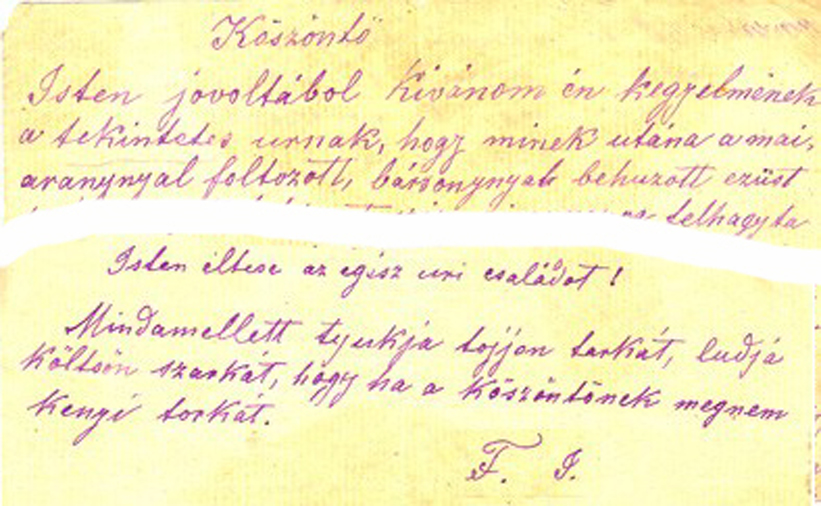 Köszöntő
Isten jovoltából kivánom én kegyelmének
a tekintetes urnak, hogy minek utána a mai,
aranynyal foltozott, bársonynyal behuzott ezüst
felhagyta
Isten éltese az egész uri családot!
Mindamellett tyukja tojjon tarkát, ludja
költsön szarkát, hogy ha a köszöntőnek megnem
kenyi torkát.
F. I.